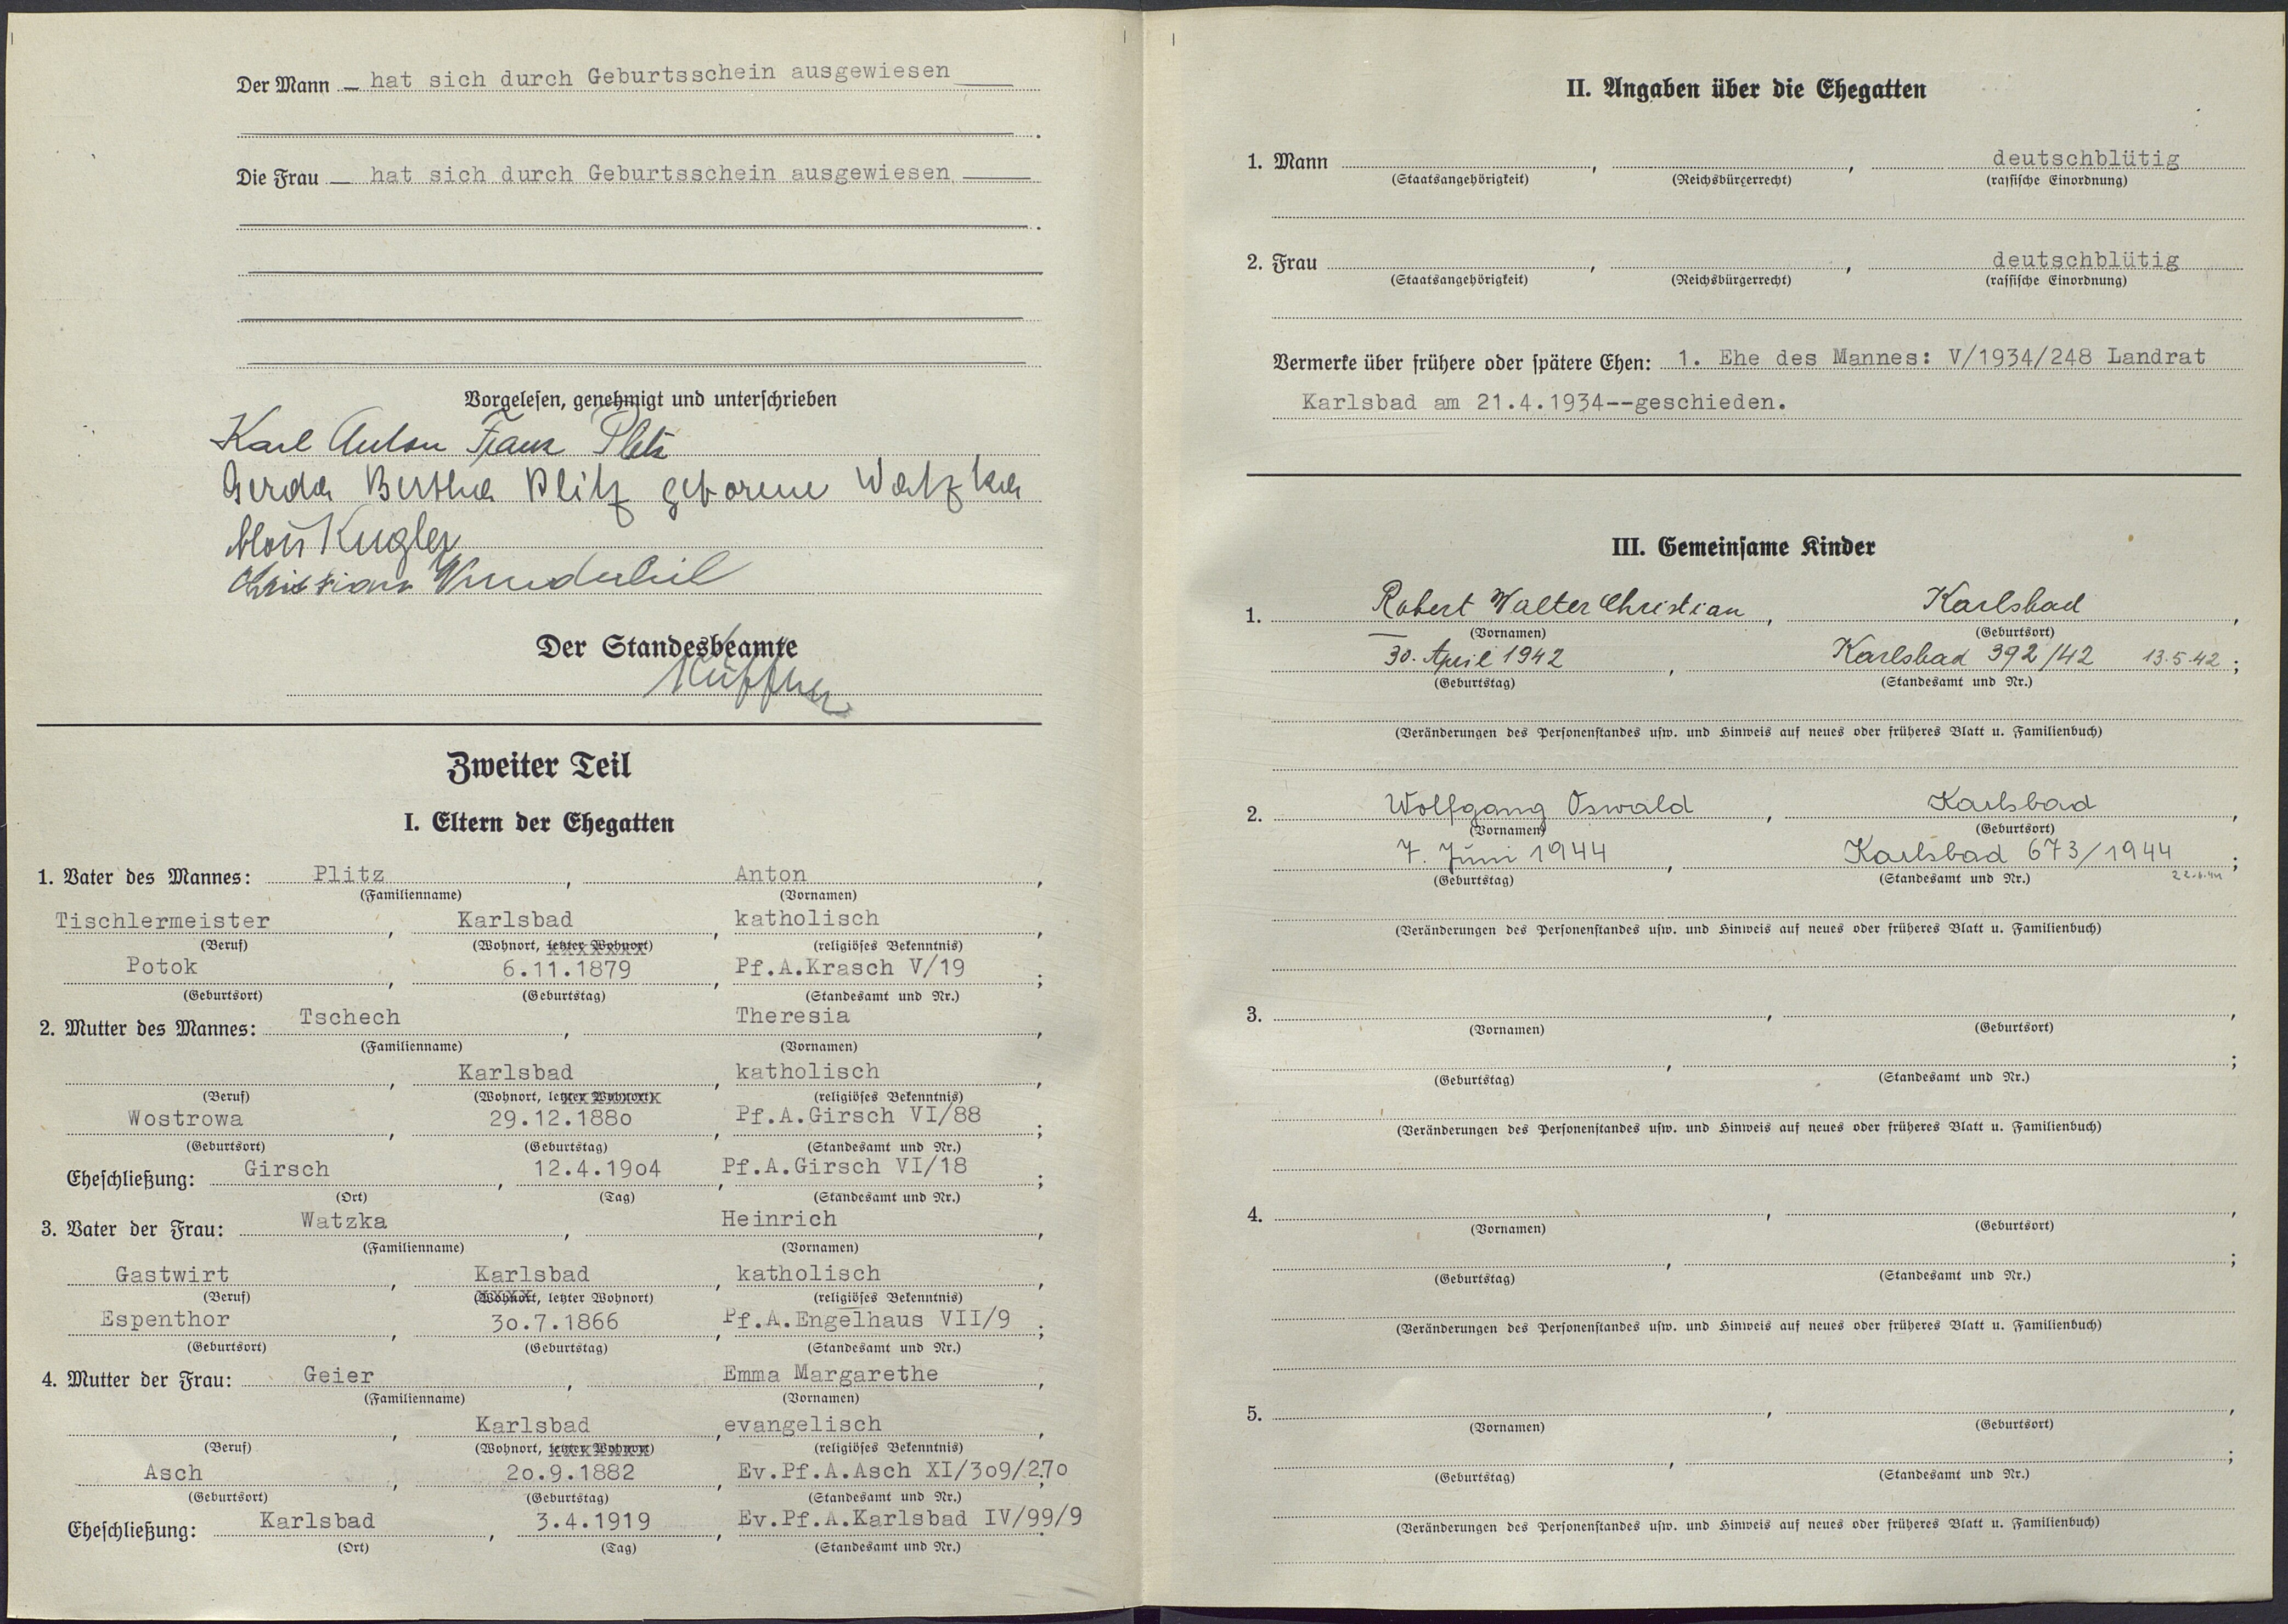 Der Mann — hat sich durch Geburtsschein ausgewiesen
Die Frau — hat sich durch Geburtsschein ausgewiesen
Vorgelesen, genehmigt und unterschrieben
Karl Anton Franz Plitz
Gerda Bertha Plitz geborene Watzka
Alois Kugler
Christian
Der Standesbeamte
Zweiter Teil
I. Eltern der Ehegatten
1. Vater des Mannes: Plitz, Anton,
(Familienname) (Vornamen)
Tischlermeister, Karlsbad, katholisch,
(Beruf) (Wohnort, letzter Wohnort) (religiöses Bekenntnis)
Potok, 6.11.1879, Pf.A.Krasch V/19;
(Geburtsort) (Geburtstag) (Standesamt und Nr.)
2. Mutter des Mannes: Tschech, Theresia,
(Familienname) (Vornamen)
, Karlsbad, katholisch,
(Beruf) (Wohnort, letzter Wohnort) (religiöses Bekenntnis)
Wostrowa, 29.12.188o, Pf.A.Girsch VI/88;
(Geburtsort) (Geburtstag) (Standesamt und Nr.)
Eheschließung: Girsch, 12.4.19o4, Pf.A.Girsch VI/18;
(Ort) (Tag) (Standesamt und Nr.)
3. Vater der Frau: Watzka, Heinrich,
(Familienname) (Vornamen)
Gastwirt, Karlsbad, katholisch,
(Beruf) (Wohnort, letzter Wohnort) (religiöses Bekenntnis)
Espenthor, 3o.7.1866, Pf.A.Engelhaus VII/9;
(Geburtsort) (Geburtstag) (Standesamt und Nr.)
4. Mutter der Frau: Geier, Emma Margarethe,
(Familienname) (Vornamen)
, Karlsbad, evangelisch,
(Beruf) (Wohnort, letzter Wohnort) (religiöses Bekenntnis)
Asch, 2o.9.1882, Ev.Pf.A.Asch XI/3o9/27o;
(Geburtsort) (Geburtstag) (Standesamt und Nr.)
Eheschließung: Karlsbad, 3.4.1919, Ev.Pf.A.Karlsbad IV/99/9.
(Ort) (Tag) (Standesamt und Nr.)
II. Angaben über die Ehegatten
1. Mann , , deutschblütig
(Staatsangehörigkeit) (Reichsbürgerrecht) (rassische Einordnung)
2. Frau , , deutschblütig
(Staatsangehörigkeit) (Reichsbürgerrecht) (rassische Einordnung)
Vermerke über frühere oder spätere Ehen: 1. Ehe des Mannes: V/1934/248 Landrat
Karlsbad am 21.4.1934--geschieden.
III. Gemeinsame Kinder
1. Robert Walter Christian, Karlsbad,
(Vornamen) (Geburtsort)
30. April 1942, Karlsbad 392/42 13.5.42;
(Geburtstag) (Standesamt und Nr.)
(Veränderungen des Personenstandes usw. und Hinweis auf neues oder früheres Blatt u. Familienbuch)
2. Wolfgang Oswald, Karlsbad,
(Vornamen) (Geburtsort)
7. Juni 1944, Karlsbad 673/1944;
(Geburtstag) (Standesamt und Nr.)
(Veränderungen des Personenstandes usw. und Hinweis auf neues oder früheres Blatt u. Familienbuch)
3. , ,
(Vornamen) (Geburtsort)
, ;
(Geburtstag) (Standesamt und Nr.)
(Veränderungen des Personenstandes usw. und Hinweis auf neues oder früheres Blatt u. Familienbuch)
4. , ,
(Vornamen) (Geburtsort)
, ;
(Geburtstag) (Standesamt und Nr.)
(Veränderungen des Personenstandes usw. und Hinweis auf neues oder früheres Blatt u. Familienbuch)
5. , ,
(Vornamen) (Geburtsort)
, ;
(Geburtstag) (Standesamt und Nr.)
(Veränderungen des Personenstandes usw. und Hinweis auf neues oder früheres Blatt u. Familienbuch)